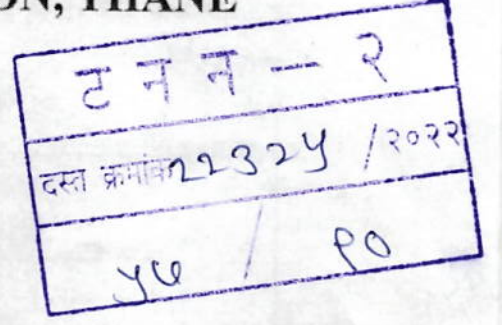 ON, THANE
ट न न — २
दस्त क्रमांक २२३२५ /२०२२
५७ / ९०